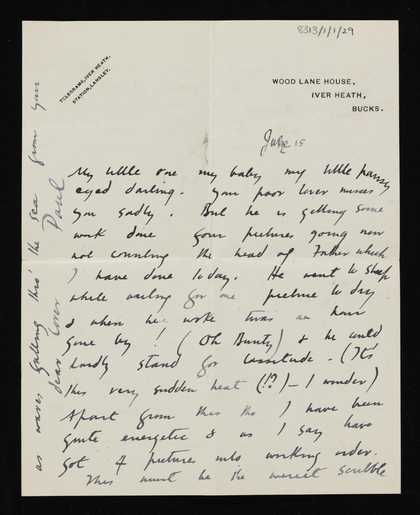 8313/1/1/29
TELEGRAMS, IVER HEATH.
STATION, LANGLEY.
WOOD LANE HOUSE,
IVER HEATH,
BUCKS.
July 15
My little one my baby my little pansy
eyed darling. your poor lover misses
you sadly. But he is getting some
work done four pictures going now
not counting the head of Father which
I have done today. He went to sleep
while waiting for one picture to dry
& when he woke twas an hour
gone by! (Oh Bunty) & he could
hardly stand for lassitude. (Its
this very sudden heat (!?) – I wonder)
Apart from this tho I have been
quite energetic & as I say have
got 4 pictures into working order.
This must be the merest scribble
as waves falling thro' the sea from your
dear lover Paul